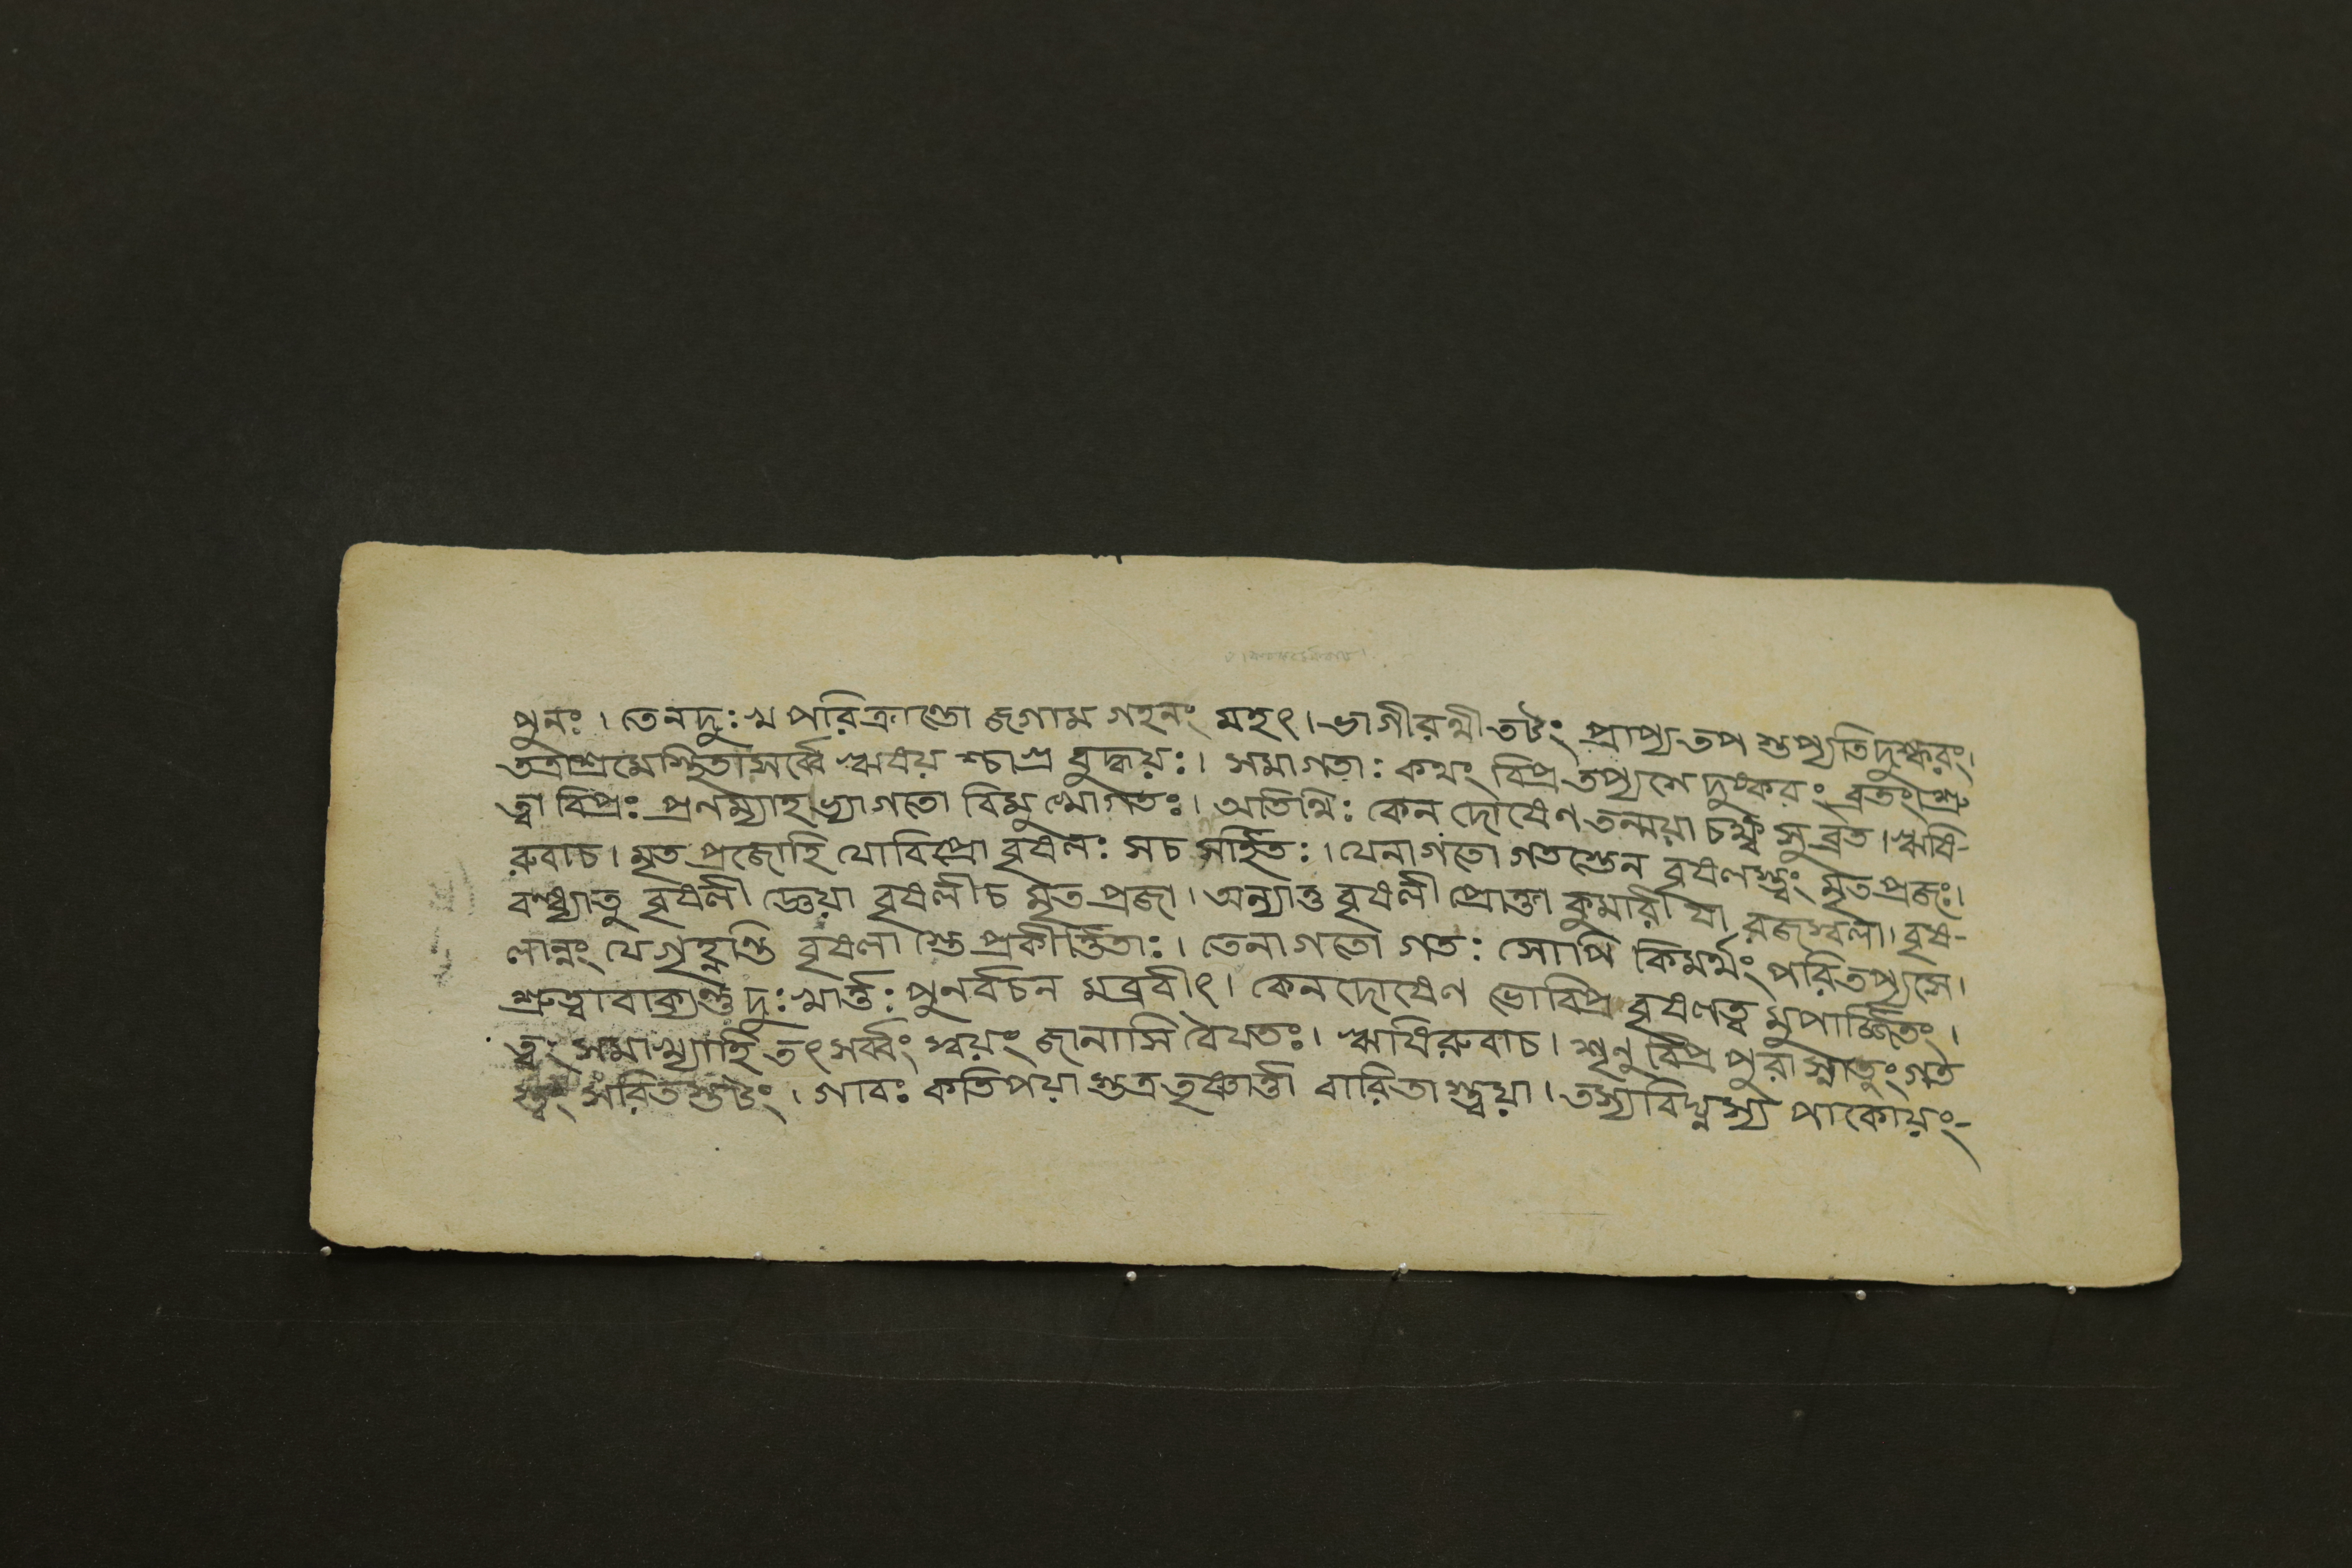 পুনঃ। তেনদুঃখ পরিক্রান্তো জগাম গহনং মহৎ। ভাগীরথীতটং প্রাপ্য তপ স্তপ্যতিদুষ্করং।
তত্রাশ্রমেস্থিতাসর্ব্বে ঋষয় শ্চাগ্র বুদ্ধয়ঃ। সমাগতাঃ কথং বিপ্র তপ্যসে দুষ্করং ব্রতং।শ্রু
ত্বা বিপ্রঃ প্রনম্যাহ ভ্যাগতো বিমুখোগতঃ। অতিথিঃ কেন দোষেণ তন্ময়া চক্ষ্ব সুব্রত। ঋষি-
রুবাচ। মৃত প্রজোহি যোবিপ্রো বৃষলঃ সচ সর্হিতঃ। যেনাগতো গতস্তেন বৃষলস্ত্বং মৃতপ্রজঃ।
বন্ধ্যাতু বৃষলী জ্ঞেয়া বৃষলীচ মৃত প্রজা। অন্যাতু বৃষলী প্রোক্তা কুমারী যা রজস্বলা। বৃষ-
লান্নং যেগৃহ্নন্তি বৃষলা স্তে প্রকীর্ত্তিতাঃ। তেনাগতো গতঃ সোপি কিমর্থং পরিতপ্যসে।
শ্রুত্বাবাক্যন্তু দুঃখার্ত্তঃ পুনর্বচন মব্রবীৎ। কেনদোষেণ ভোবিপ্র বৃষলত্ব মুপার্জ্জিতং।
ত্বং সমাখ্যাহি তৎসর্ব্বং স্বয়ং জানাসি বৈযতঃ। ঋষিরুবাচ। শৃনু বিপ্র পুরা স্নাতুং গত
স্ত্বং সরিতস্তটং। গাবঃ কতিপয়া স্তত্র তৃষ্ণার্ত্তা বারিতা স্ত্বয়া। তস্যবিঘ্নস্য পাকোয়ং-